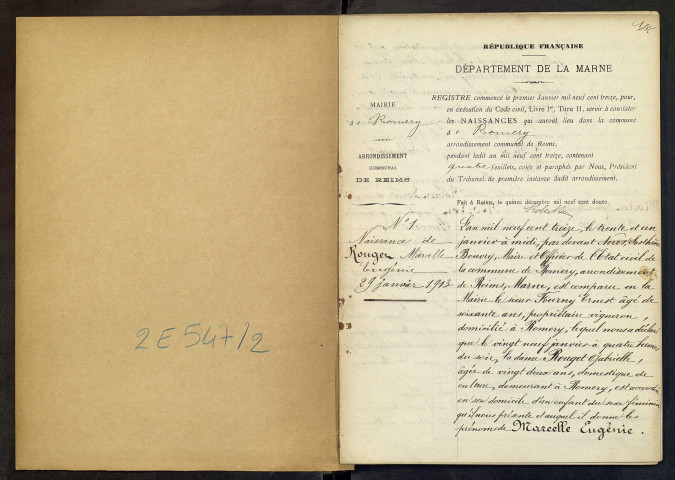 2 E 547/2
RÉPUBLIQUE FRANÇAISE
DÉPARTEMENT DE LA MARNE
MAIRIE
de Romery
ARRONDISSEMENT
COMMUNAL
DE REIMS
REGISTRE commencé le premier Janvier mil neuf cent treize, pour,
en exécution du Code civil, Livre Ier, Titre II, servir à constater
les NAISSANCES qui auront lieu dans la commune
de Romery
arrondissement communal de Reims,
pendant ledit an mil neuf cent treize, contenant
quatre feuillets, cotés et paraphés par Nous, Président
du Tribunal de première instance dudit arrondissement.
Fait à Reims, le quinze décembre mil neuf cent douze.
No 1
Naissance de
Rouget Marcelle
Eugénie
29 janvier 1913
L'an mil neuf cent treize, le trente et un
janvier à midi, par devant Nous,
Bouvry, Maire et Officier de l'Etat civil de
la commune de Romery, arrondissement
de Reims, Marne, est comparu en la
Mairie le sieur Fourny Ernest âgé de
soixante ans, propriétaire vigneron,
domicilié à Romery, lequel nous a déclaré
que le vingt neuf janvier à quatre heures
du soir, la dame Rouget Gabrielle,
âgée de vingt deux ans, domestique de
culture, demeurant à Romery, est accouchée
en son domicile d'un enfant du sexe féminin
qu'il nous présente et auquel il donne les
prénoms de Marcelle Eugénie.